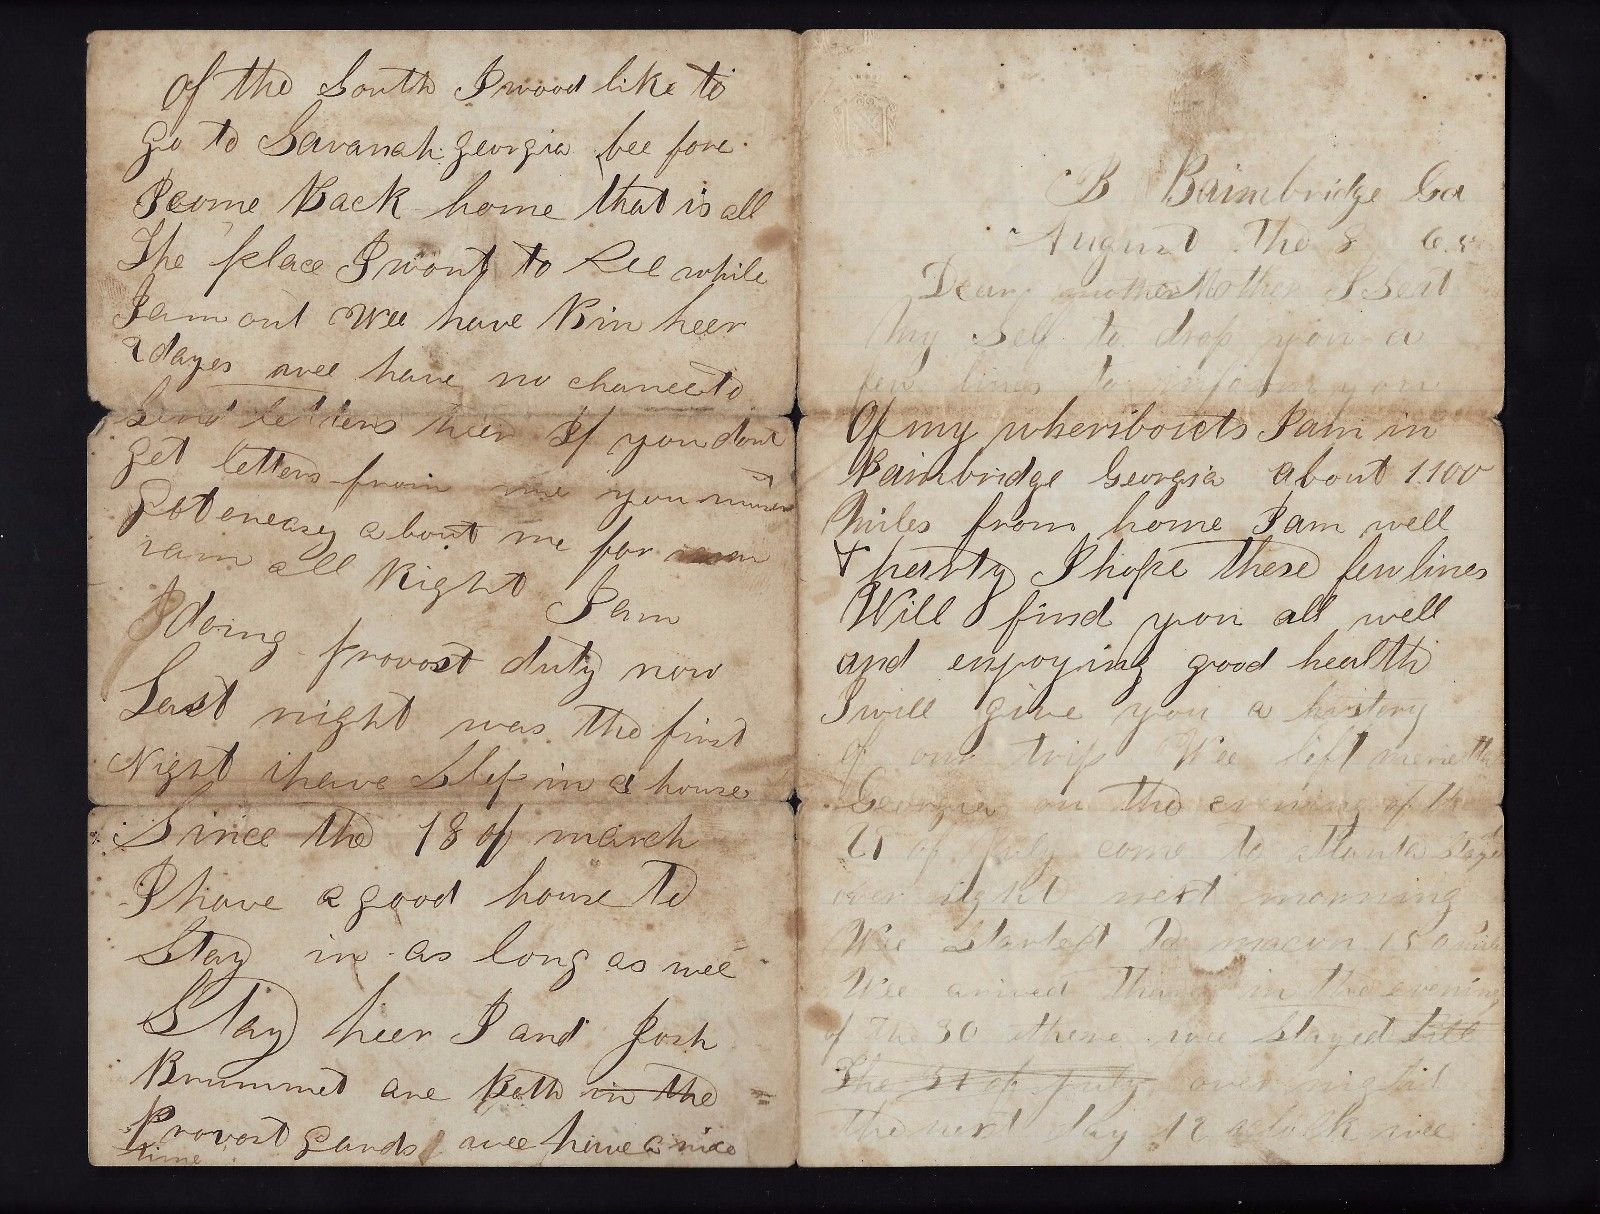 of the South I wood like to
go to Savanah georgia bee fore
I come Back home that is all
The place I wont to See while
I am out Wee have Bin heer
2 dayes wee have no chance to
Send letters heer If you dont
get letters from me you must
got oneasy about me for
iam all Right I am
doing provost duty now
Last night was the first
Night i have Slep in a house
Since the 18 of march
I have a good house to
Stay in as long as wee
Stay heer I and Josh
Brummet are Both in the
Provost gards wee have a nice
time
B Baimbridge Ga
August the 8 65
Dear mother Mother I Seat
My Self to drop you a
few lines to inform you
Of my wheribouts I am in
Baimbridge Georgia about 1100
Miles from home I am well
& hearty I hope these few lines
Will find you all well
and enjoying good health
I will give you a history
of our trip Wee left marietta
Georgia on the evening of the
29 of July come to atlanta Stayed
over night next morning
Wee Started to macon 150 miles
Wee arived there in the evening
of the 30 there wee Stayed till
the 31 of July over night
the next day 12 oclock wee